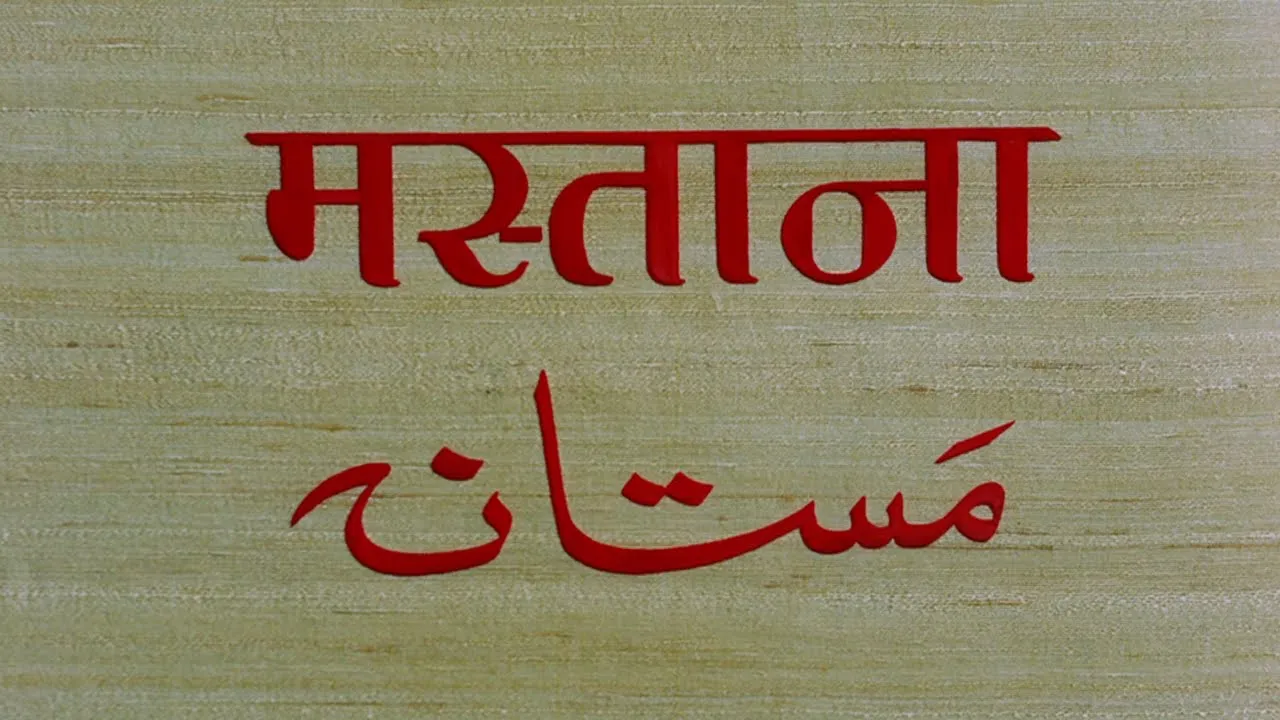 मस्ताना
مَستانہ